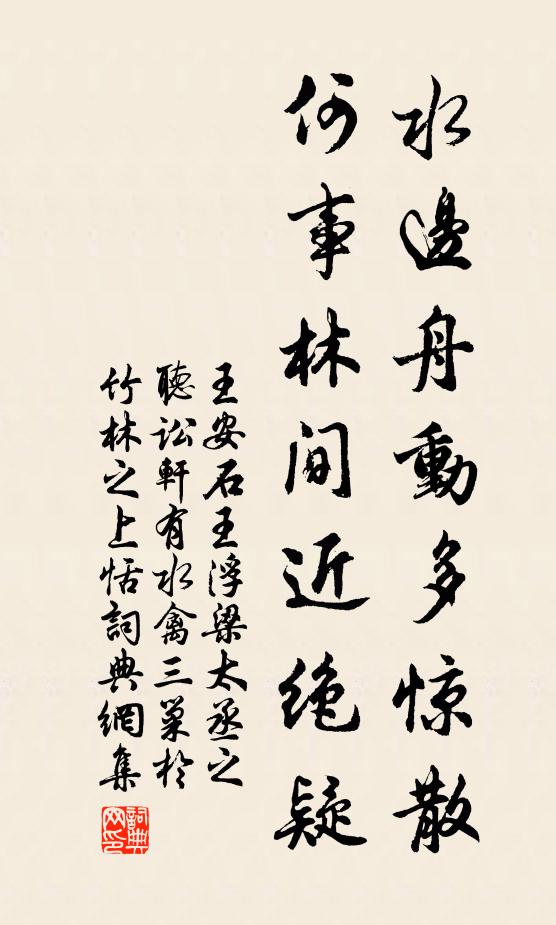 水邊舟動多惊散
何事林間近絶疑
王安石王浮梁太丞之
聽訟軒有水禽三巢於
竹林之上恬詞典網集
詞典網印